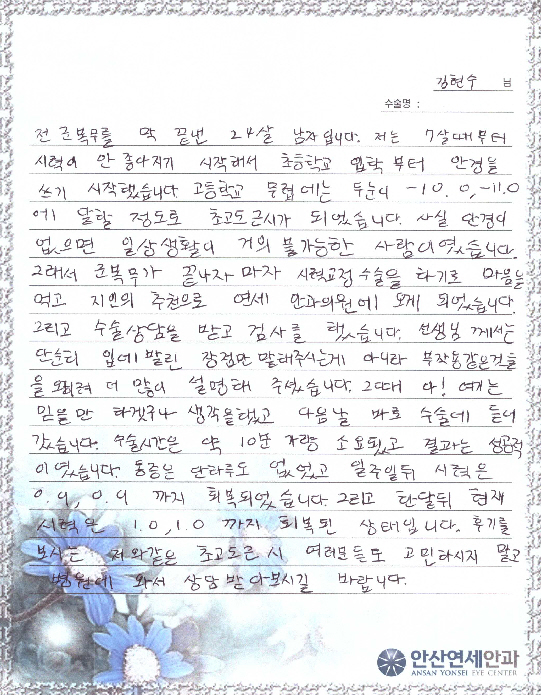 김현수 님
수술명 :
전 군복무를 막 끝낸 24살 남자입니다. 저는 7살때부터
시력이 안 좋아지기 시작해서 초등학교 입학 부터 안경을
쓰기 시작했습니다. 고등학교 무렵에는 두눈이 -10.0, -11.0
에 달할 정도로 초고도근시가 되었습니다. 사실 안경이
없으면 일상생활이 거의 불가능한 사람이였습니다.
그래서 군복무가 끝나자 마자 시력교정 수술을 하기로 마음을
먹고 지인의 추천으로 연세 안과의원에 오게 되었습니다.
그리고 수술상담을 받고 검사를 했습니다. 선생님 께서는
단순히 입에 발린 장점만 말해주시는게 아니라 부작용같은것들
을 오히려 더 많이 설명해 주셨습니다. 그때 아! 여기는
믿을만 하겠구나 생각을했고 다음날 바로 수술에 들어
갔습니다. 수술시간은 약 10분 가량 소요됬고 결과는 성공적
이였습니다. 통증은 한하루도 없었고 일주일뒤 시력은
0.9, 0.9 까지 회복되었습니다. 그리고 한달뒤 현재
시력은 1.0, 1.0 까지 회복된 상태입니다. 후기를
보시는 저와같은 초고도근시 여러분들도 고민하시지 말고
병원에 와서 상담 받아보시길 바랍니다.
안산연세안과
ANSAN YONSEI EYE CENTER